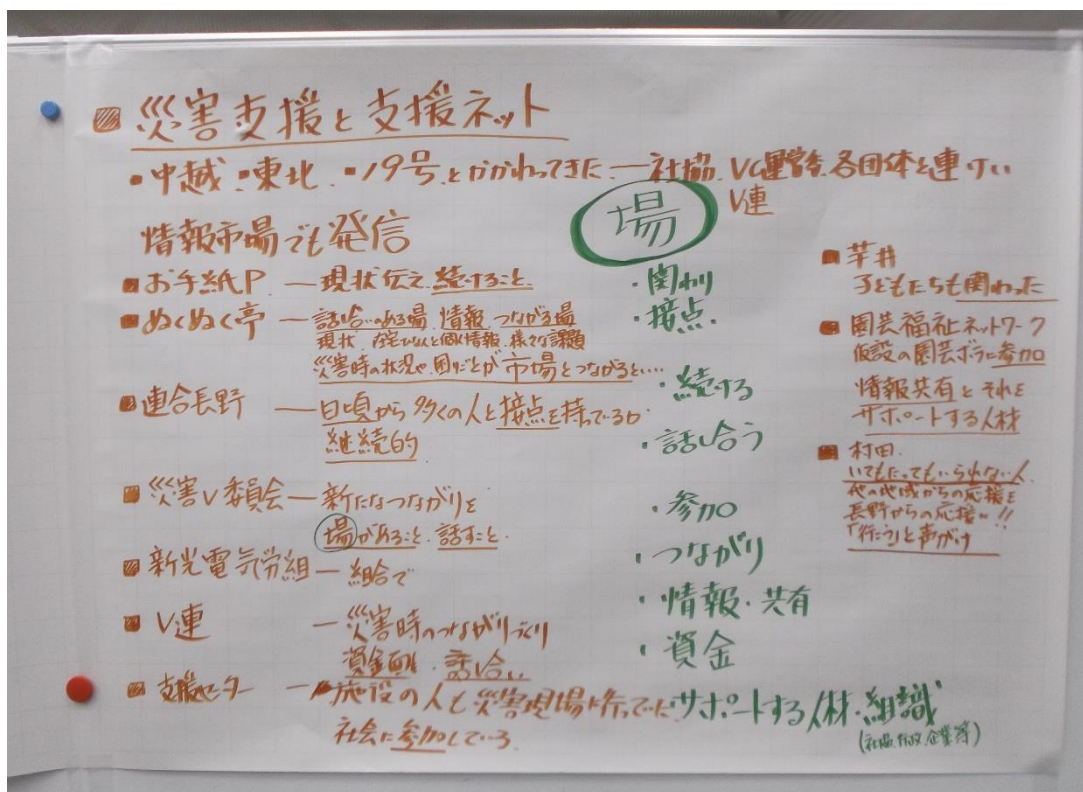 災害支援と支援ネット
・中越・東北・19号とかかわってきた ― 社協、VC運営委、各団体と連けい
V連
情報市場でも発信
お手紙P ― 現状伝え続けること
ぬくぬく亭 ― 話し合いのある場 情報 つながる場
現状 、在宅の人と個人情報、様々な課題
災害時の状況や困りごとが市場とつながると‥‥
連合長野 ― 日頃から多くの人と接点を持っているか
継続的
災害V委員会 ― 新たなつながりを
場があること、話すこと
新光電気労組 ― 組合で
V連 ― 災害時のつながりづくり
資金面も、話し合い
支援センター ― 施設の人も災害現場に行っていた
社会に参加している
場
・関わり
・接点
・続ける
・話し合う
・参加
・つながり
・情報・共有
・資金
サポートする人材・組織
(社協、行政、企業等)
芋井
子どもたちも関わった
園芸福祉ネットワーク
仮設の園芸ボラに参加
情報共有とそれを
サポートする人材
村田
いてもたってもいられない人
他の地域からの応援を
長野からの応援に!!
「行こう」と声がけ